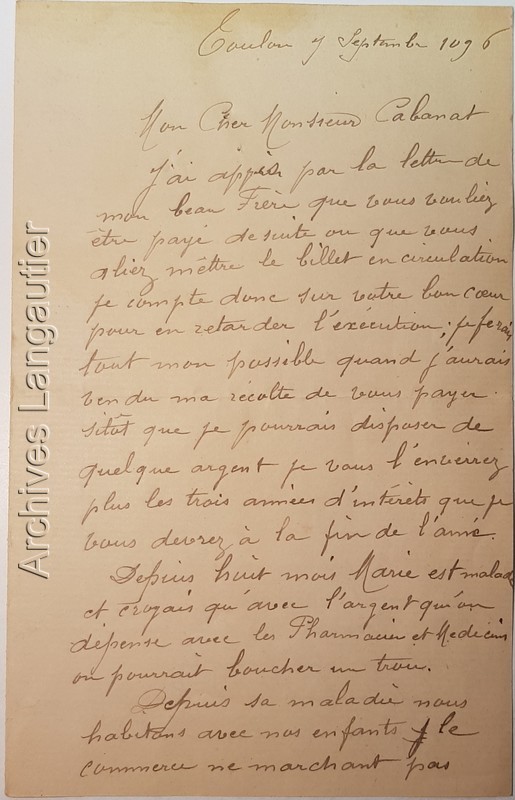 Toulon 7 Septembre 1896
Mon Cher Monsieur Cabanat
J'ai appris par la lettre de
mon beau Frère que vous vouliez
être payé de suite ou que vous
aliez mettre le billet en circulation
je compte donc sur votre bon cœur
pour en retarder l'exécution; je ferais
tout mon possible quand j'aurais
vendu ma récolte de vous payer.
sitôt que je pourrais disposer de
quelque argent je vous l'enverrez
plus les trois années d'intérêts que je
vous devrez à la fin de l'anné.
Depuis huit mois Marie est malade
et croyais qu'avec l'argent qu'on
dépense avec les Pharmacien et Medecins
on pourrait boucher un trou.
Depuis sa maladie nous
habitons avec nos enfants le
commerce ne marchant pas
Archives Langautier